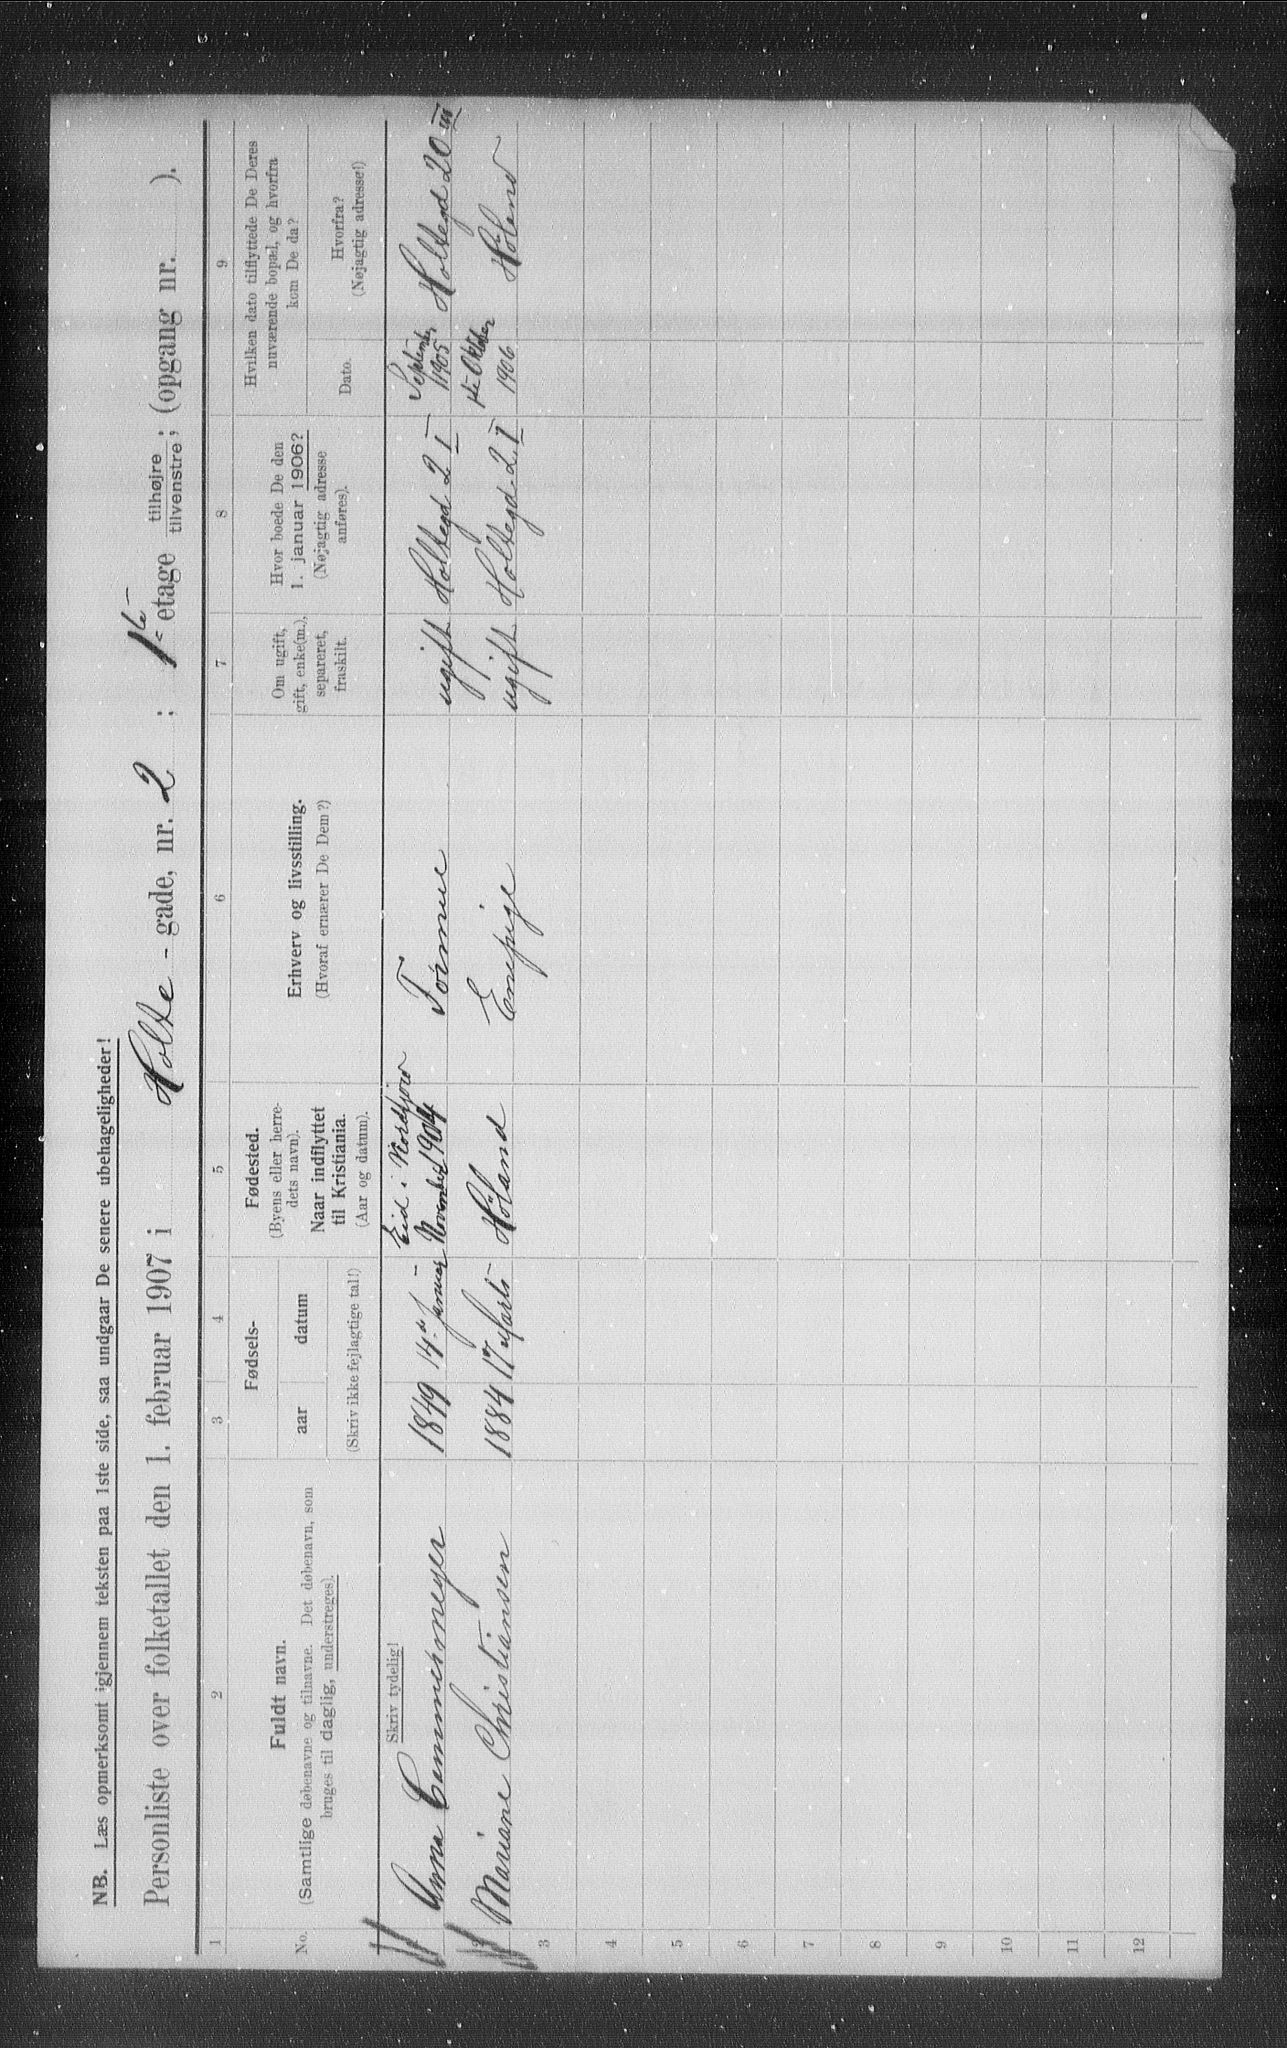 NB. Læs opmerksomt igjennem teksten paa 1ste side, saa undgaar De senere ubehageligheder!
Personliste over folketallet den 1. februar 1907 i Holte - gade, nr. 2 ; 1ste etage tilhøjre tilvenstre; (opgang nr. ).
1 2 3 4 5 6 7 8 9
No.
Fuldt navn.
(Samtlige døbenavne og tilnavne. Det døbenavn, som
bruges til daglig, understreges).
Fødsels-
aar datum
(Skriv ikke fejlagtige tal!)
Fødested.
(Byens eller herre-
dets navn).
Naar indflyttet
til Kristiania.
(Aar og datum).
Erhverv og livsstilling.
(Hvoraf ernærer De Dem?)
Om ugift,
gift, enke(m.),
separeret,
fraskilt.
Hvor boede De den
1. januar 1906?
(Nøjagtig adresse
anføres).
Hvilken dato tilflyttede De Deres
nuværende bopæl, og hvorfra
kom De da?
Dato.
Hvorfra?
(Nøjagtig adresse!)
Skriv tydelig!
Anna Cammermeyer 1849 14de Januar Eid i Nordfjord November 1904 Formue ugift Holtegd 2 I September 1905 Holtegd 20 III
2 Mariane Christiansen 1884 17 Marts Höland Enepige ugift Holtegd. 2 I Oktober 1906 Höland
3
4
5
6
7
8
9
10
11
12